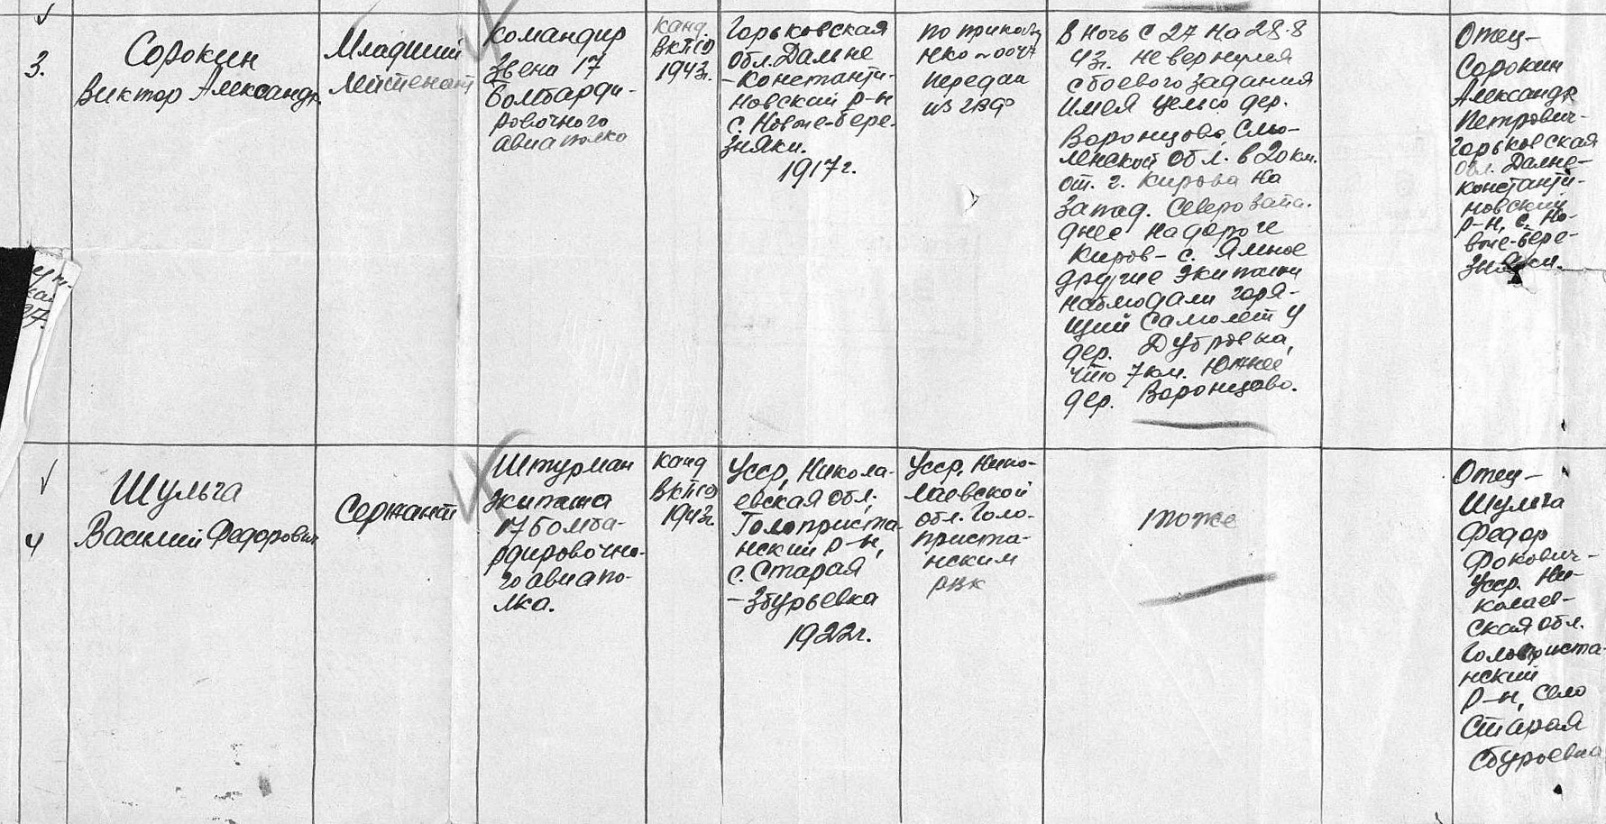 3.
Сорокин
Виктор Александр.
Младший
лейтенант
Командир
звена 17
бомбарди-
ровочного
авиаполка
канд.
ВКП(б)
1943г.
Горьковская
обл. Дальне
-Константи-
новский р-н
с. Новые-Бере-
зняки.
1917г.
по приказу
НКО №0047
передан
из ГВФ
В ночь с 27 на 28.8
43г. не вернулся
с боевого задания
имея целью дер.
Воронцово, Смо-
ленской обл. в 20 км.
от г. Кирова на
запад. Северо запа.
днее на дороге
Киров - с. Ямное
другие экипажи
наблюдали горя-
щий самолет у
дер. Дубровка,
что 7 км. южнее
дер. Воронцово.
Отец-
Сорокин
Александр
Петрович-
Горьковская
обл. Дальне-
константи-
новский
р-н, с. Но-
вые-Бере-
зняки.
4
Шульга
Василий Федорович
Сержант
Штурман
экипажа
17 бомба-
рдировочно-
го авиапо-
лка.
канд
ВКП(б)
1943г.
УССР, Никола-
евская обл.
Голоприста-
нский р-н,
с. Старая
-Збурьевка
1922г.
УССР, Нико-
лаевской
обл. Голо-
приста-
нским
РВК
тоже
Отец-
Шульга
Федор
Фокович-
УССР. Ни-
колаев-
ская обл.
Голоприста-
нский
р-н, село
Старая
Сбурьевка